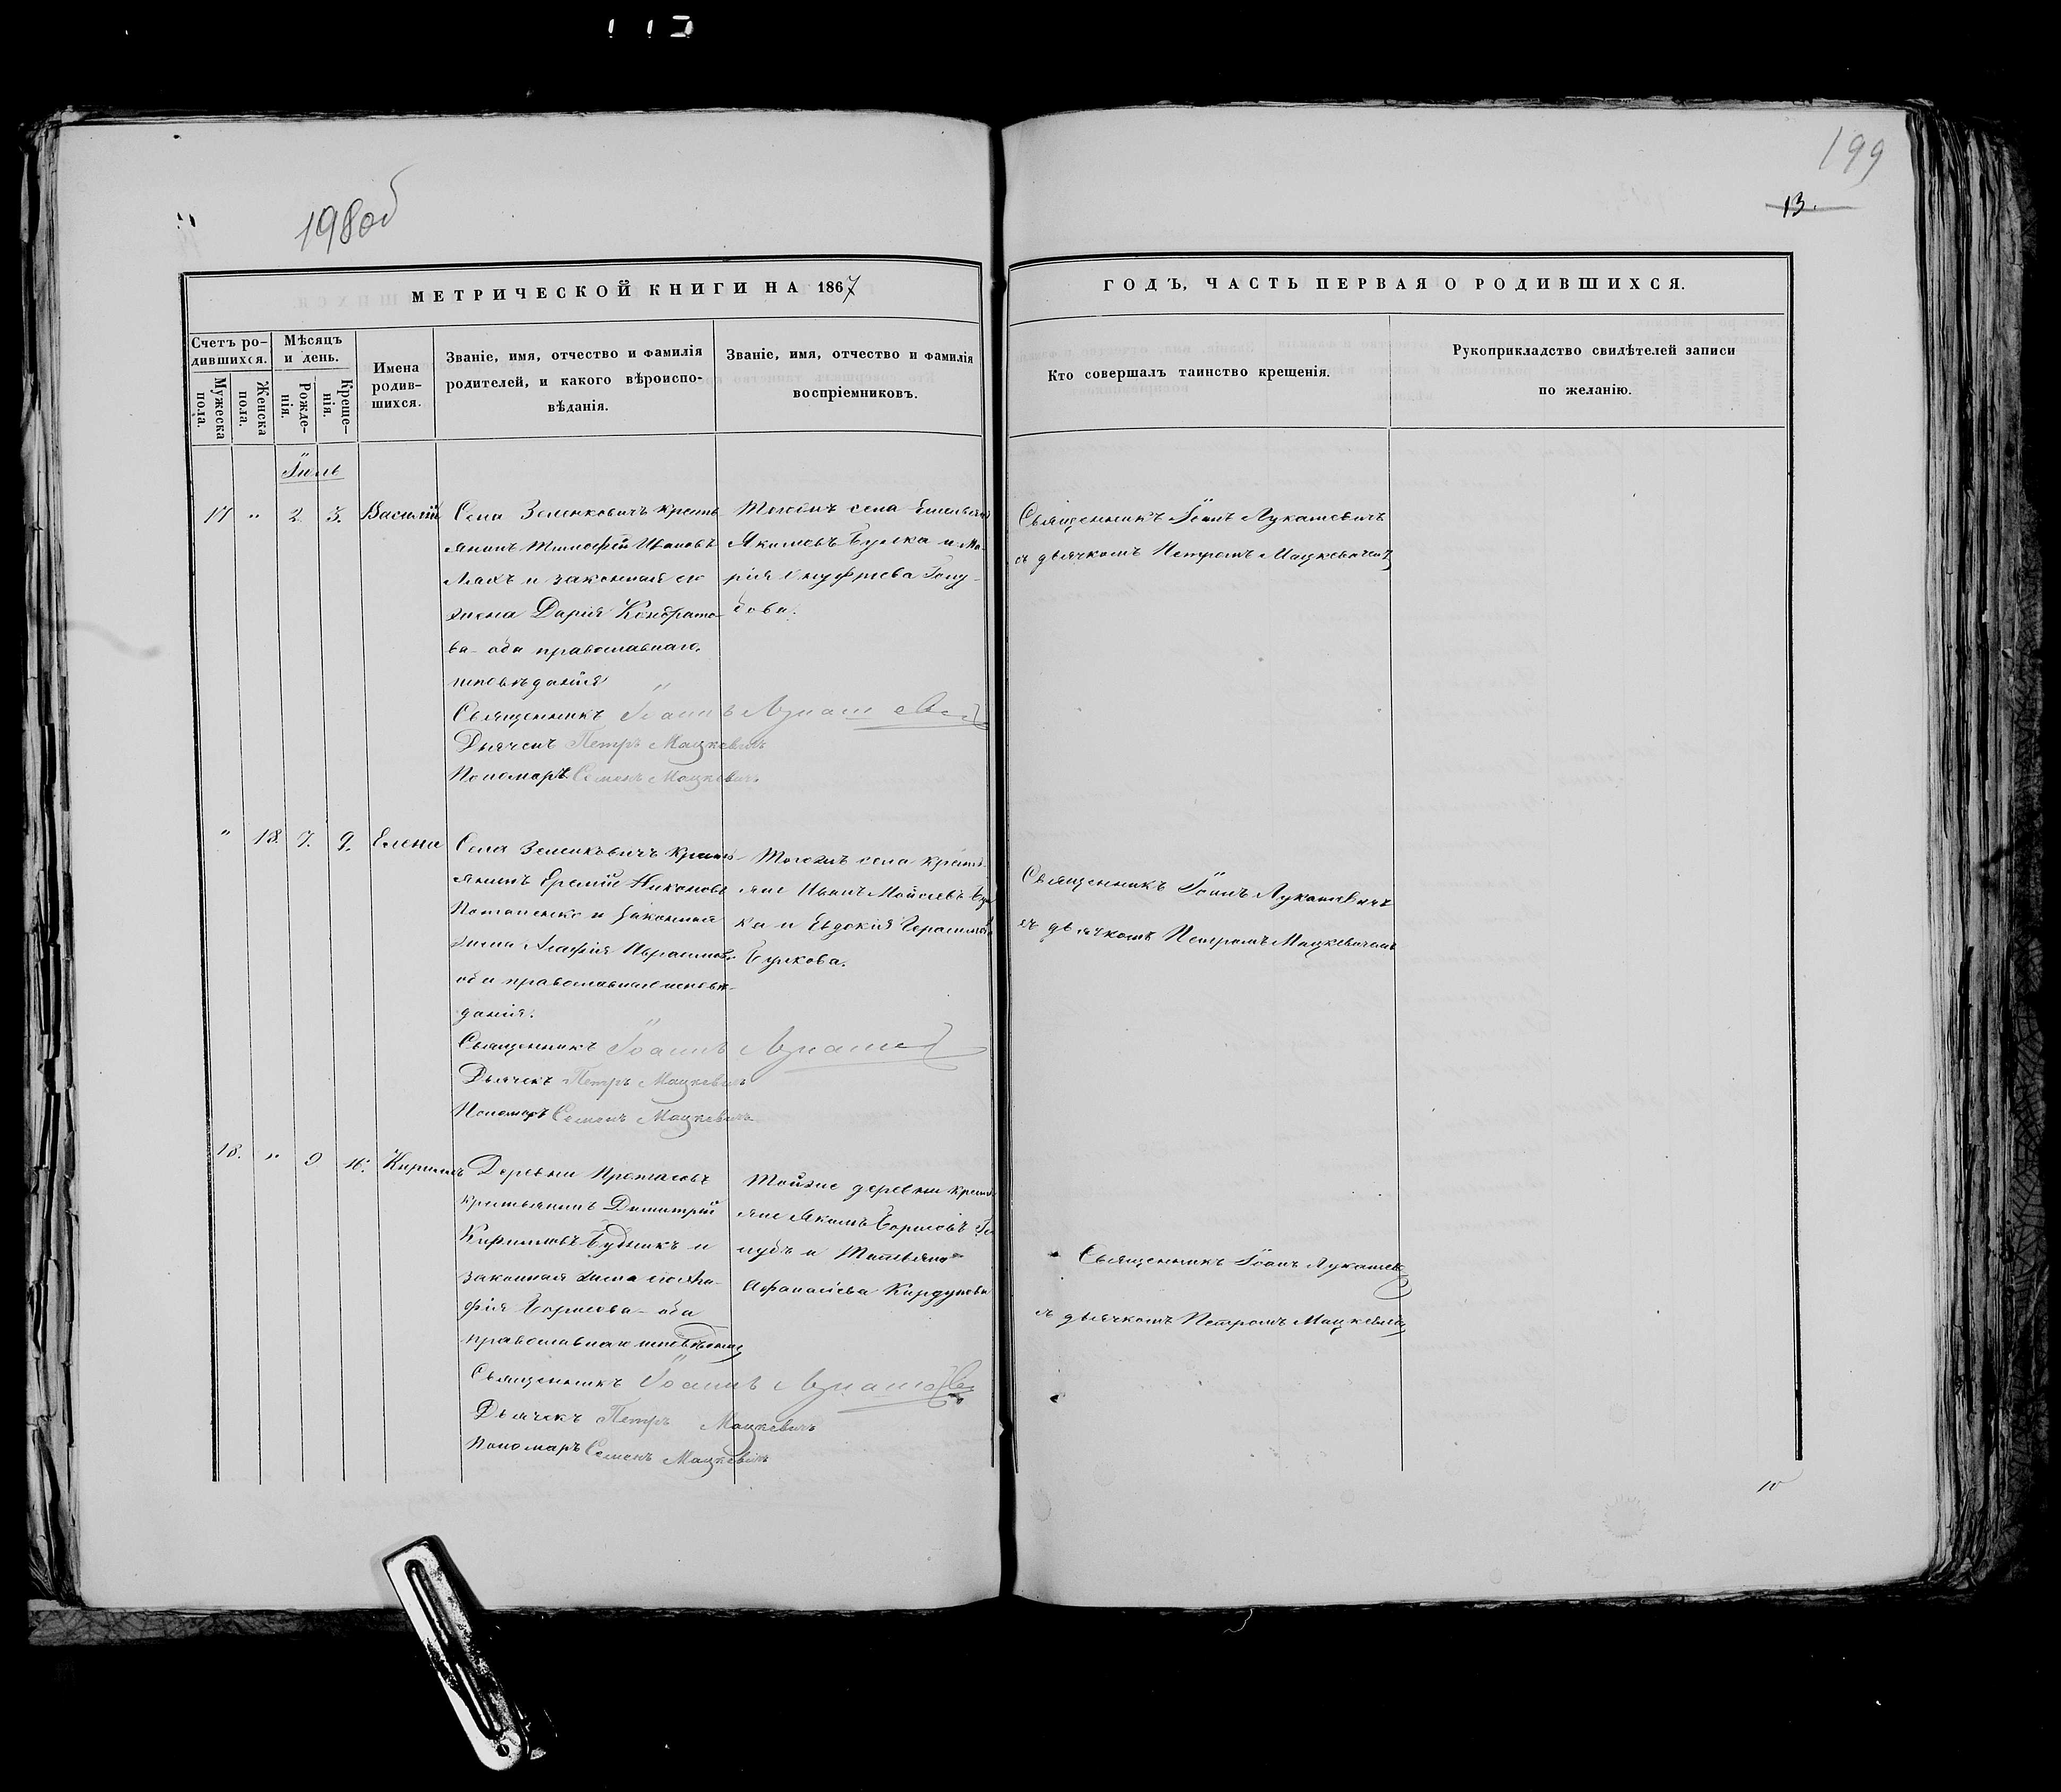 199
13.
198об
МЕТРИЧЕСКОЙ КНИГИ НА 1867
ГОДЪ, ЧАСТЬ ПЕРВАЯ О РОДИВШИХСЯ.
Счетъ ро-
дившихся.
Мужеска
пола.
Женска
пола.
Мѣсяцъ
и день.
Рожде-
нія.
Креще-
нія.
Имена
родив-
шихся.
Званіе, имя, отчество и фамилія
родителей, и какого вѣроиспо-
вѣданія.
Званіе, имя, отчество и фамилія
воспріемниковъ.
Кто совершалъ таинство крещенія.
Рукоприкладство свидѣтелей записи
по желанію.
Іюль
17 " 2. 3. Василій
Села Зеленковичъ кресть
янинъ Тимофей Ивановъ
и законная его
жена Дарія Кондрато-
ва оба православнаго
исповѣданія
Священникъ Іоаннъ
Дьячекъ Петръ Мацкевичъ
Пономаръ Семенъ Мацкевичъ
Тогожъ села
Якимовъ Булка и Ма-
рія Голу-
бова.
Священникъ Іоаннъ Лукашевичъ
съ дьячкомъ Петромъ Мацкевичемъ
" 18. 7. 9. Елена
Села Зеленковичъ кресть-
янинъ Еремій Никоновъ
Потапенко и законная
жена Агафія
оба православнаго исповѣ-
данія.
Священникъ Іоаннъ
Дьячекъ Петръ Мацкевичъ
Пономаръ Семенъ Мацкевичъ
Тогожъ села кресть-
яне Иванъ Мойсеевъ Бул
ка и Евдокія Герасимова
Булкова.
Священникъ Іоаннъ Лукашевичъ
съ дьячкомъ Петромъ Мацкевичемъ
18. " 9 16. Кириллъ
Деревни
крестьянинъ Димитрій
Кирилловъ Будникъ и
законная жена его Ага-
фія Борисова оба
православнаго исповѣданія
Священникъ Іоаннъ
Дьячекъ Петръ Мацкевичъ
Пономаръ Семенъ Мацкевичъ
Тойже деревни кресть
яне Якимъ Борисовъ Го
лубъ и Татьяна
Афанасіева
Священникъ Іоаннъ Лукашев
съ дьячкомъ Петромъ Мацкевичемъ